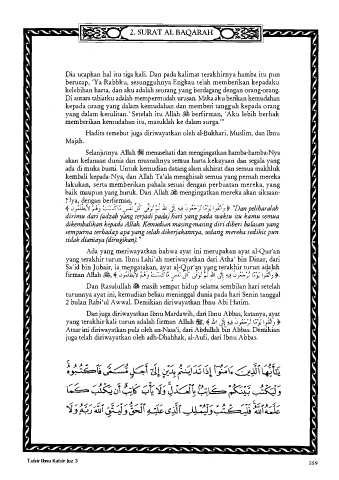 2. SURAT AL BAQARAH
Dia ucapkan hal itu tiga kali. Dan pada kalimat terakhirnya hamba itu pun
berucap, 'Ya Rabbku, sesungguhnya Engkau telah memberikan kepadaku
kelebihan harta, dan aku adalah seorang yang berdagang dengan orang-orang.
Di antara tabiatku adalah mempermudah urusan. Maka aku berikan kemudahan
kepada orang yang dalam kemudahan dan memberi tangguh kepada orang
yang dalam kesulitan.' Setelah itu Allah ﷻ berfirman, 'Aku lebih berhak
memberikan kemudahan itu, masuklah ke dalam surga.'"
Hadits tersebut juga diriwayatkan oleh al-Bukhari, Muslim, dan Ibnu
Majah.
Selanjutnya Allah ﷻ menasehati dan mengingatkan hamba-hamba-Nya
akan kefanaan dunia dan musnahnya semua harta kekayaan dan segala yang
ada di muka bumi. Untuk kemudian datang alam akhirat dan semua makhluk
kembali kepada-Nya, dan Allah Ta'ala menghisab semua yang pernah mereka
lakukan, serta memberikan pahala sesuai dengan perbuatan mereka, yang
baik maupun yang buruk. Dan Allah ﷻ mengingatkan mereka akan siksaan-
Nya, dengan berfirman,
﴿ وَاتَّقُوا يَوْمًا تُرْجَعُونَ فِيهِ إِلَى اللَّهِ ثُمَّ تُوَفَّى كُلُّ نَفْسٍ مَّا كَسَبَتْ وَهُمْ لَا يُظْلَمُونَ ﴾ "Dan peliharalah
dirimu dari (adzab yang terjadi pada) hari yang pada waktu itu kamu semua
dikembalikan kepada Allah. Kemudian masing-masing diri diberi balasan yang
sempurna terhadap apa yang telah dikerjakannya, sedang mereka sedikit pun
tidak dianiaya (dirugikan)."
Ada yang meriwayatkan bahwa ayat ini merupakan ayat al-Qur'an
yang terakhir turun. Ibnu Lahi'ah meriwayatkan dari Atha' bin Dinar, dari
Sa'id bin Jubair, ia mengatakan, ayat al-Qur'an yang terakhir turun adalah
firman Allah ﷻ, ﴿ وَاتَّقُوا يَوْمًا تُرْجَعُونَ فِيهِ إِلَى اللَّهِ ثُمَّ تُوَفَّى كُلُّ نَفْسٍ مَّا كَسَبَتْ وَهُمْ لَا يُظْلَمُونَ ﴾.
Dan Rasulullah ﷺ masih sempat hidup selama sembilan hari setelah
turunnya ayat ini, kemudian beliau meninggal dunia pada hari Senin tanggal
2 bulan Rabi'ul Awwal. Demikian diriwayatkan Ibnu Abi Hatim.
Dan juga diriwayatkan Ibnu Mardawih, dari Ibnu Abbas, katanya, ayat
yang terakhir kali turun adalah firman Allah ﷻ, ﴿ وَاتَّقُوا يَوْمًا تُرْجَعُونَ فِيهِ إِلَى اللَّهِ ﴾.
Atsar ini diriwayatkan pula oleh an-Nasa'i, dari Abdullah bin Abbas. Demikian
juga telah diriwayatkan oleh adh-Dhahhak, al-Aufi, dari Ibnu Abbas.
يَٰٓأَيُّهَا ٱلَّذِينَ ءَامَنُوٓا۟ إِذَا تَدَايَنتُم بِدَيْنٍ إِلَىٰٓ أَجَلٍ مُّسَمًّى فَٱكْتُبُوهُ
وَلْيَكْتُب بَّيْنَكُمْ كَاتِبٌۢ بِٱلْعَدْلِ وَلَا يَأْبَ كَاتِبٌ أَن يَكْتُبَ كَمَا
عَلَّمَهُ ٱللَّهُ فَلْيَكْتُبْ وَلْيُمْلِلِ ٱلَّذِى عَلَيْهِ ٱلْحَقُّ وَلْيَتَّقِ ٱللَّهَ رَبَّهُۥ وَلَا
Tafsir Ibnu Katsir Juz 3
559